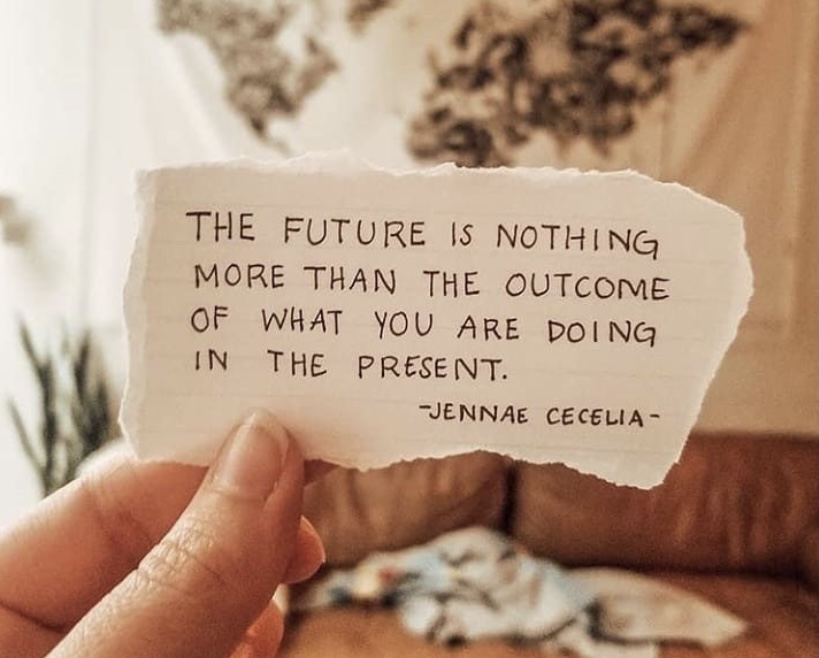 THE FUTURE IS NOTHING
MORE THAN THE OUTCOME
OF WHAT YOU ARE DOING
IN THE PRESENT.
-JENNAE CECELIA-